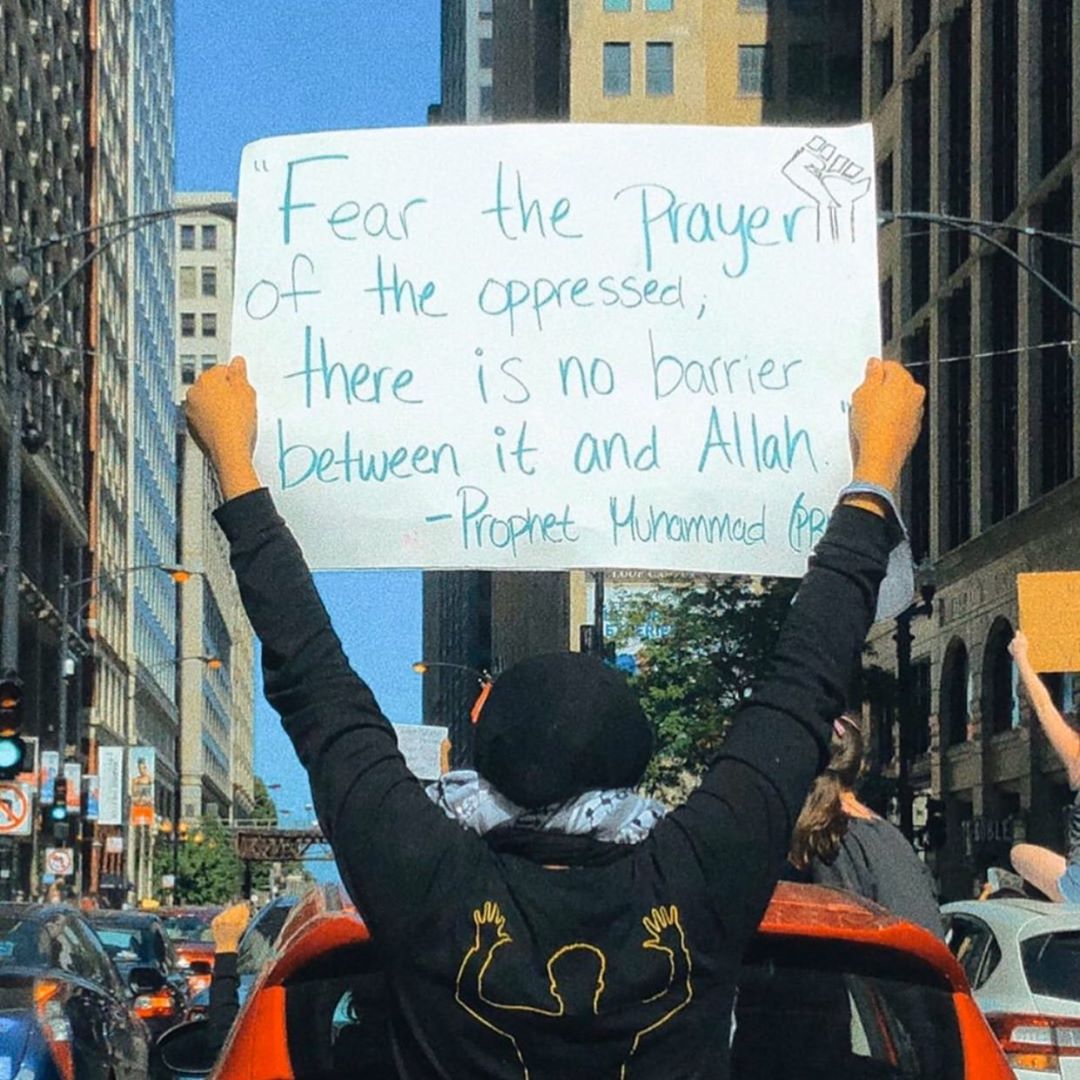 "Fear the Prayer
of the oppressed;
there is no barrier
between it and Allah."
-Prophet Muhammad (PB